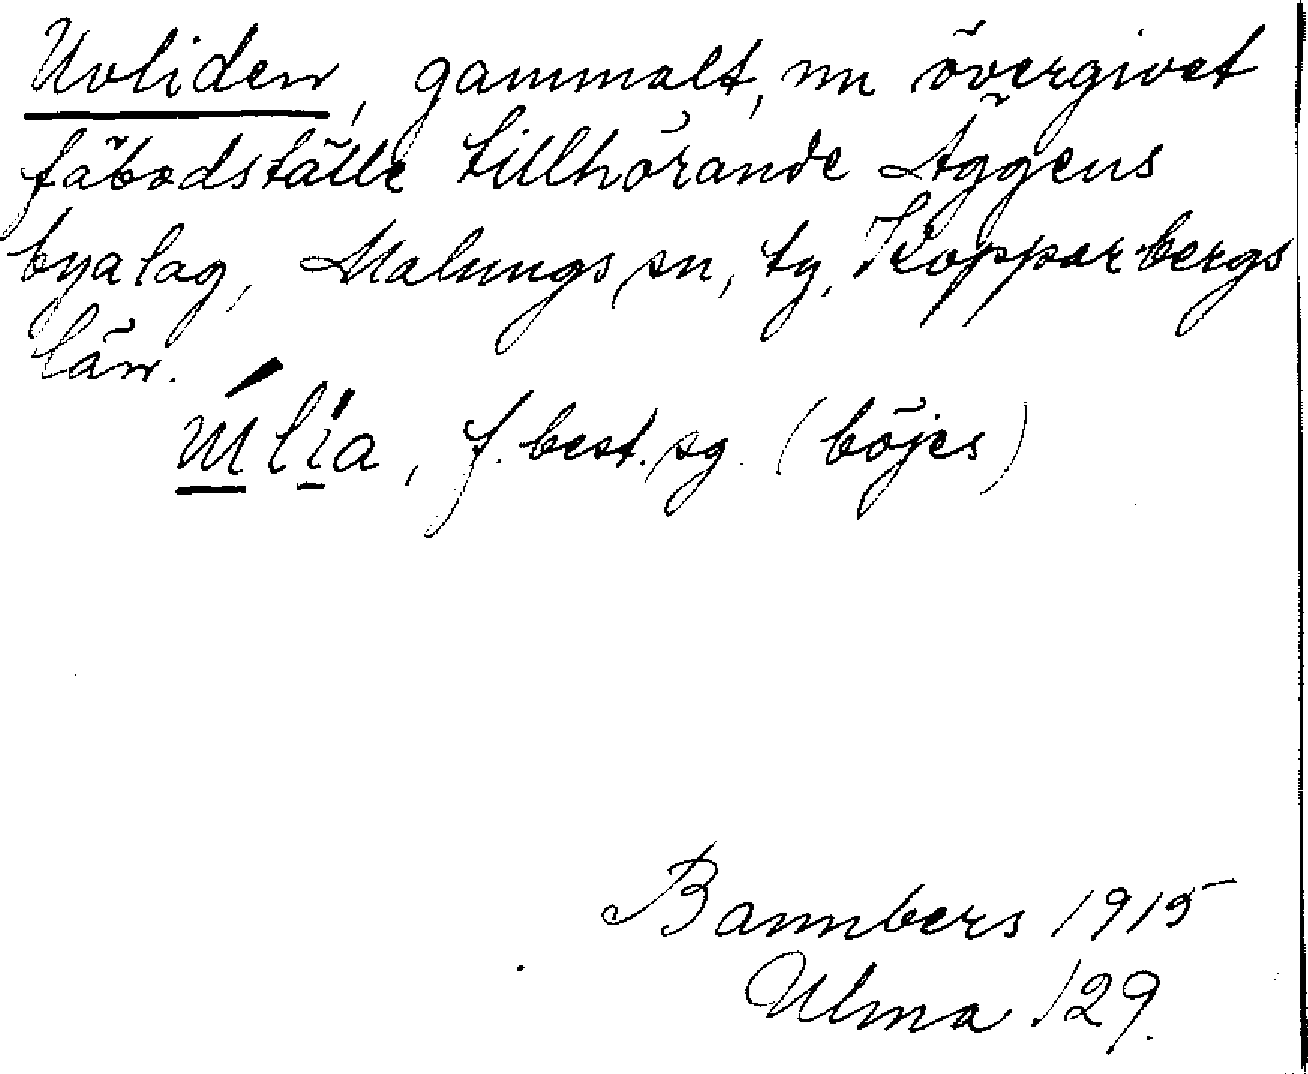 Uvliden, gammalt, nu övergivet
fäbodställe tillhörande Äggens
byalag, Malungs sn, ty, Kopparbergs
län.
lía, f. best. sg. (böjes)
Bannbers 1915
Ulma 129.